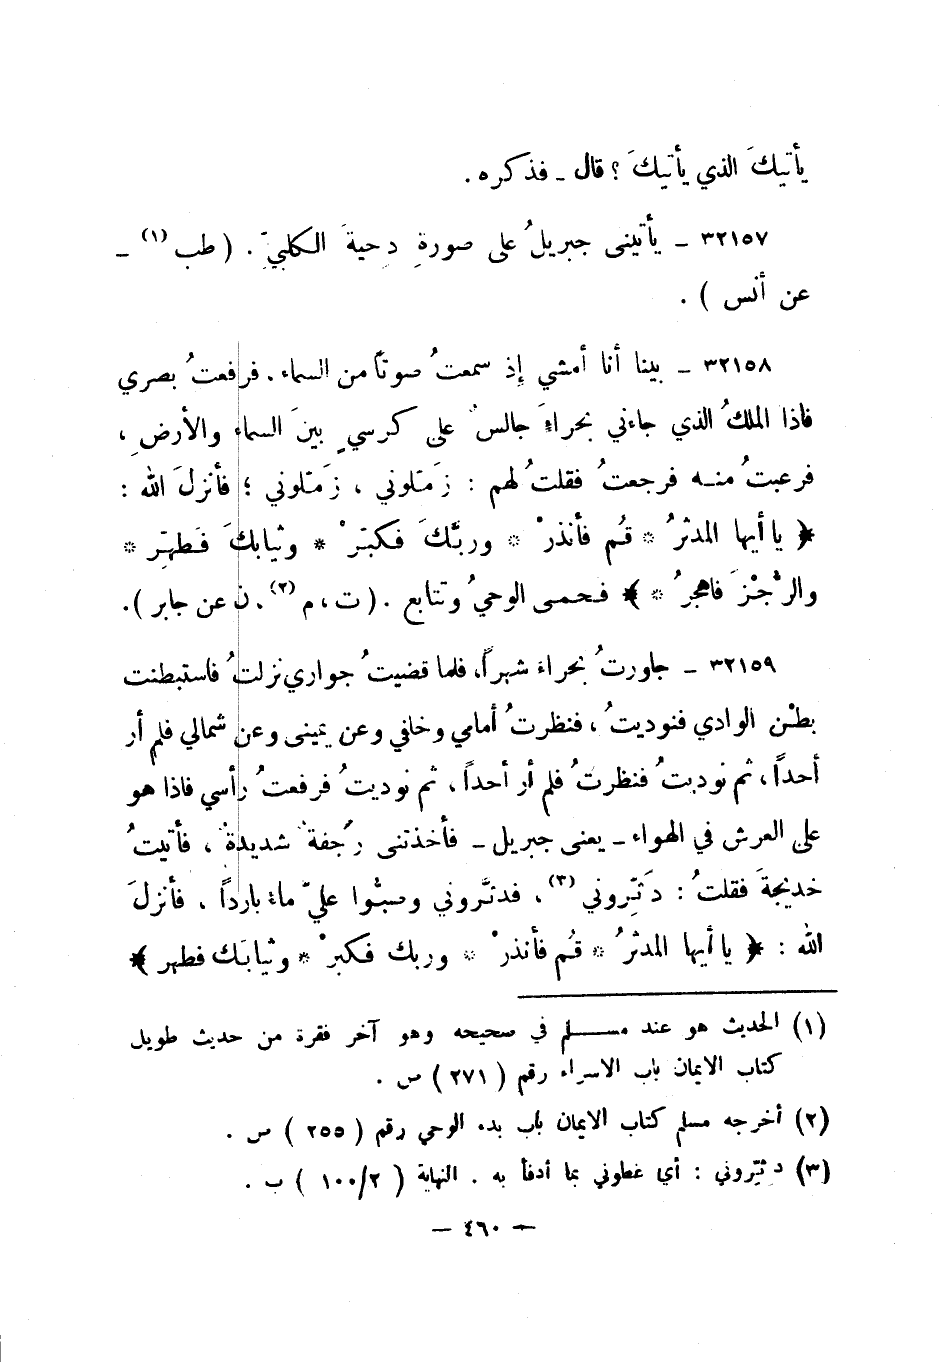 يأتيكَ الذي يأتيكَ ؟ قال ـ فذكره .
٣٢١٥٧ ـ يأتيني جبريلُ على صورةِ دِحيةَ الكلبيِّ . ( طب (١) ـ
عن أنس ) .
٣٢١٥٨ ـ بينا أنا أمشي إذ سمعتُ صوتاً من السماء . فرفعتُ بصري
فاذا الملكُ الذي جاءني بحراءَ جالسٌ على كرسيٍ بينَ السماء والأرضِ ،
فرعبتُ منـه فرجعتُ فقلتُ لهم : زَمِّلوني ، زَمِّلوني ؛ فأنزلَ الله :
﴿ يا أيها المدثرُ * قُم فأنذرْ * وربَّكَ فكبِّرْ * وثيابكَ فَطهِّر *
والرُّجْزَ فاهجرُ * ﴾ فحمى الوحيُ وتتابع . ( ت ، م (٢) . ن عن جابر ) .
٣٢١٥٩ ـ جاورتُ بحراءَ شهراً ، فلما قضيتُ جواري نزلتُ فاستبطنت
بطْن الوادي فنوديتُ ، فنظرتُ أمامي وخلفي وعن يميني وعن شمالي فلم أر
أحداً ، ثم نوديتُ فنظرتُ فلم أر أحداً ، ثم نوديتُ فرفعتُ رأسي فاذا هو
على العرش في الهواء ـ يعني جبريل ـ فأخذتني رَجفةٌ شديدةٌ ، فأتيتُ
خديجةَ فقلتُ : دَثِّروني (٣) ، فدثَّروني وصبُّوا عليّ ماءً بارداً ، فأنزلَ
الله : ﴿ يا أيها المدثرُ * قُم فأنذرْ * وربك فكبرْ * وثيابَك فطهر ﴾
(١) الحديث هو عند مسـلم في صحيحه وهو آخر فقرة من حديث طويل
كتاب الايمان باب الاسراء رقم ( ٢٧١ ) ص .
(٢) أخرجه مسلم كتاب الايمان باب بدء الوحي رقم ( ٢٥٥ ) ص .
(٣) دثِّروني : أي غطوني بما أدفأ به . النهاية ( ١٠٠/٢ ) ب .
— ٤٦٠ —